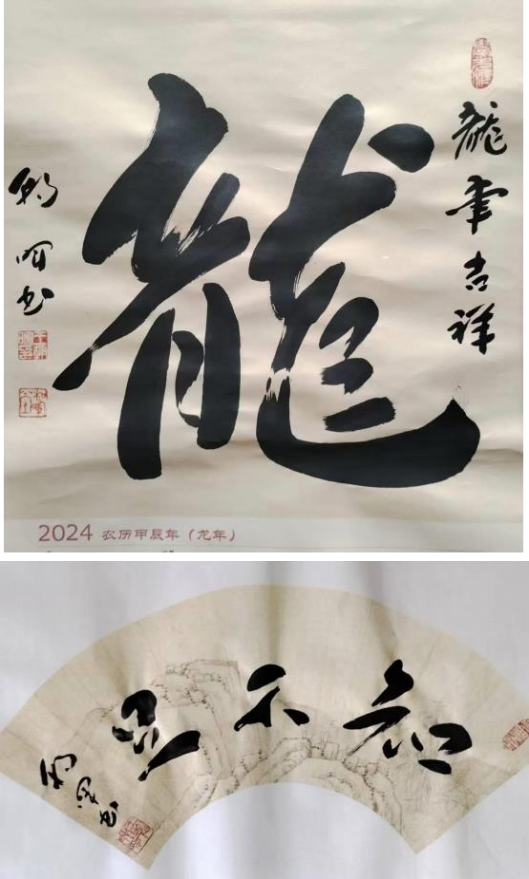 龍年吉祥
龍
书
2024 农历甲辰年（龙年）
知不足
书